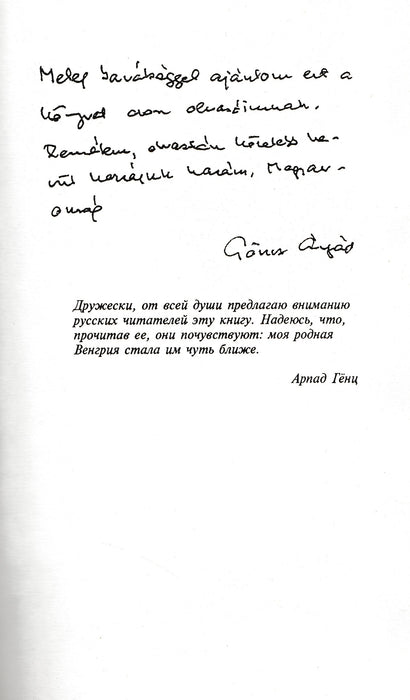 Meleg barátsággal ajánlom ezt a
könyvet orosz olvasóimnak.
Remélem, olvastán közelebb ke-
rül hozzájuk hazám, Magyar-
ország
Göncz Árpád
Дружески, от всей души предлагаю вниманию
русских читателей эту книгу. Надеюсь, что,
прочитав ее, они почувствуют: моя родная
Венгрия стала им чуть ближе.
Арпад Гёнц